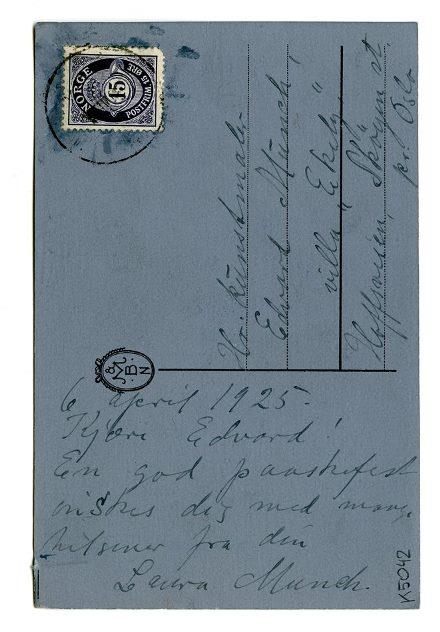 NORGE
15
POSTFRIM. 15 ØRE
Hr. Kunstmaler
Edvard Munch
villa "Ekely"
Hoffsveien, Skøyen st.
pr. Oslo
M & B N
6 April 1925.
Kjære Edvard!
En god paaskefest
ønskes dig med mange
hilsener fra din
Laura Munch.
K5042